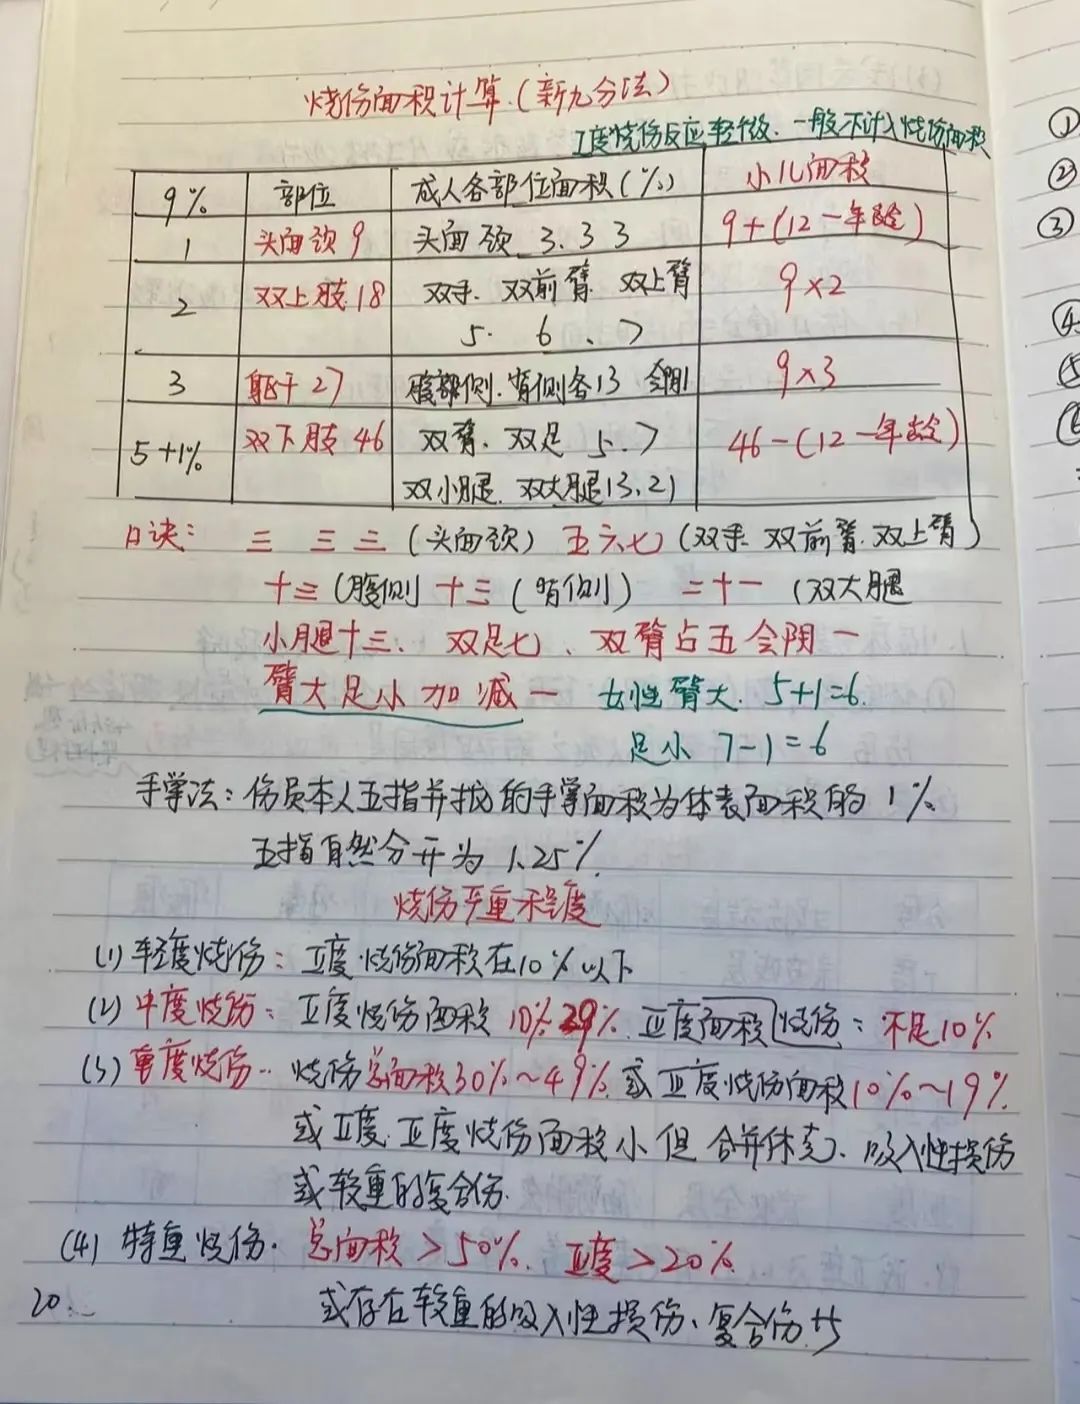 烧伤面积计算.(新九分法)
I度烧伤反应轻微.一般不计入烧伤面积
9% 部位 成人各部位面积(%) 小儿面积
1 头面颈 9 头面颈 3.3 3 9+(12-年龄)
2 双上肢 18 双手.双前臂.双上臂 9×2
5. 6、7
3 躯干 27 腹部侧.背侧各13 会阴1 9×3
5+1% 双下肢 46 双臀.双足 5.7 46-(12-年龄)
双小腿.双大腿13.21
口诀: 三 三三(头面颈) 五六七(双手.双前臂.双上臂)
十三(腹侧 十三(背侧) 二十一 (双大腿
小腿十三、双足七、双臀占五会阴一
臀大足小加减一 女性臀大.5+1=6.
足小 7-1=6
手掌法:伤员本人五指并拢的手掌面积为体表面积的1%
五指自然分开为1.25%
烧伤严重程度
(1)轻度烧伤:Ⅱ度烧伤面积在10%以下
(2)中度烧伤:Ⅱ度烧伤面积10%29%.Ⅲ度面积烧伤:不足10%
(3)重度烧伤.. 烧伤总面积30%~49%.或Ⅲ度烧伤面积10%~19%.
或Ⅱ度.Ⅲ度烧伤面积小但合并休克、吸入性损伤
或较重的复合伤.
(4)特重烧伤. 总面积>50%.Ⅲ度>20%.
20. 或存在较重的吸入性损伤、复合伤